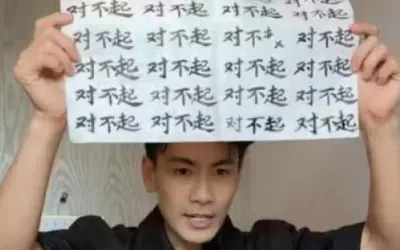 对不起 对不起 对不起
对不起 对不起 对不 x 对不起
对不起 对不起 对不起 对不起
对不起 对不起 对不起 对不起
对不起 对不起 对不起 对不起